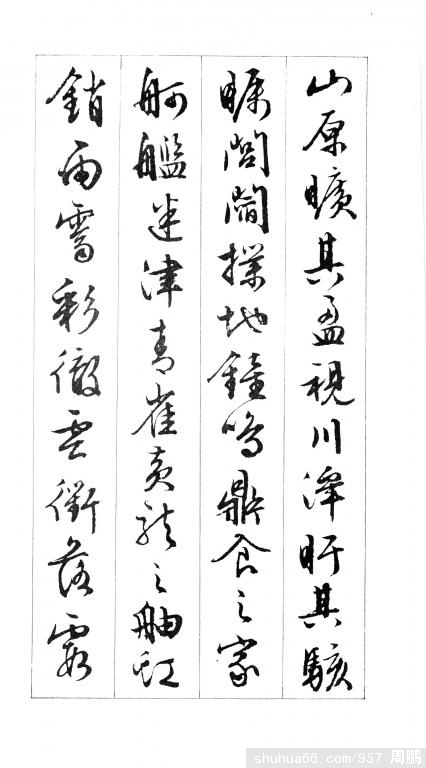 山原曠其盈視川澤盱其駭
矚閭閻撲地鐘鳴鼎食之家
舸艦迷津青雀黃龍之舳虹
銷雨霽彩徹雲衢落霞
shuhua66.com/957 周鹏